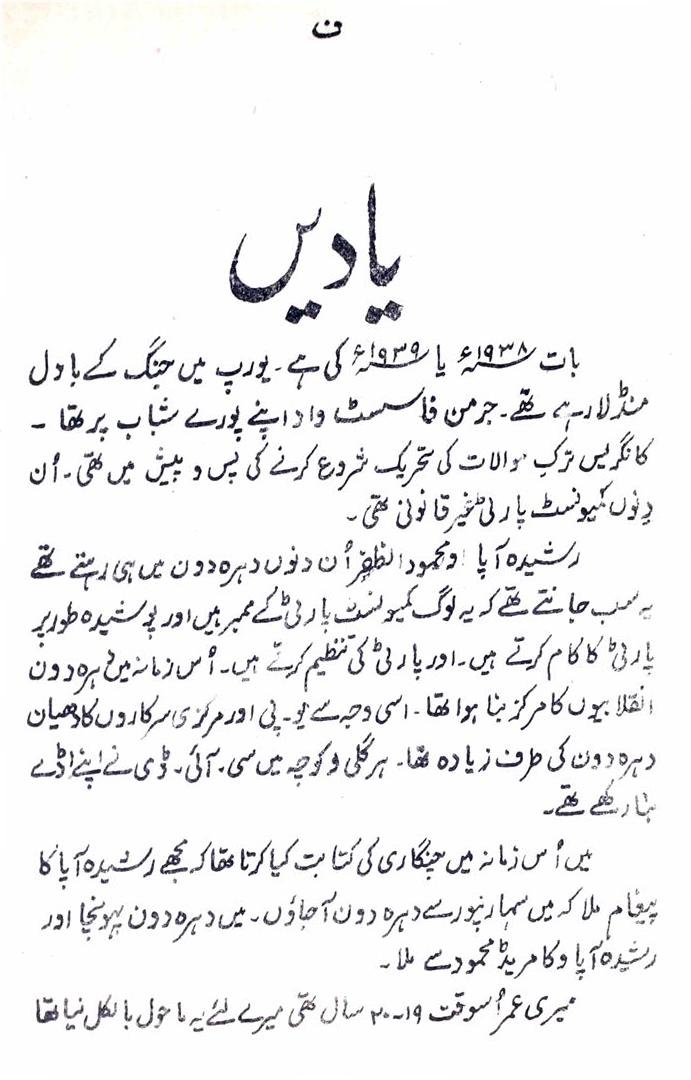 ن
یادیں
بات ۱۹۳۸ء یا ۱۹۳۹ء کی ہے۔ یورپ میں جنگ کے بادل
منڈلا رہے تھے۔ جرمن فاسسٹ واد اپنے پورے شباب پر تھا ۔
کانگریس ترکِ موالات کی تحریک شروع کرنے کی پس و پیش میں تھی۔ اُن
دِنوں کمیونسٹ پارٹی غیر قانونی تھی۔
رشیدہ آپا او محمود الظفر اُن دنوں دہرہ دون میں ہی رہتے تھے
یہ سب جانتے تھے کہ یہ لوگ کمیونسٹ پارٹی کے ممبر ہیں اور پوشیدہ طور پر
پارٹی کا کام کرتے ہیں۔ اور پارٹی کی تنظیم کرتے ہیں۔ اُس زمانہ میں دہرہ دون
انقلابیوں کا مرکز بنا ہوا تھا۔ اسی وجہ سے یو۔ پی اور مرکزی سرکاروں کا دھیان
دہرہ دون کی طرف زیادہ تھا۔ ہر گلی و کوچہ میں سی۔ آئی۔ ڈی نے اپنے اڈے
بنا رکھے تھے۔
میں اُس زمانہ میں چنگاری کی کتابت کیا کرتا تھا کہ مجھے رشیدہ آپا کا
پیغام ملا کہ میں سہارنپور سے دہرہ دون آ جاؤں۔ میں دہرہ دون پہونچا اور
رشیدہ آپا و کامریڈ محمود سے ملا۔
میری عمر اُسوقت ۱۹۔۲۰ سال تھی میرے لئے یہ ماحول بالکل نیا تھا